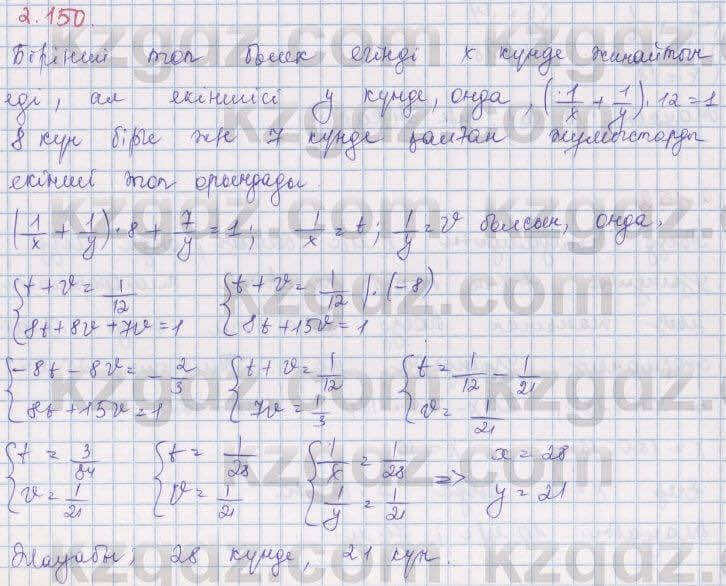 2.150.
Бірінші топ бөлек егінді x күнде жинайтын
еді, ал екіншісі y күнде, онда, (1/x + 1/y)·12 = 1
8 күн бірге және 7 күнде қалған жұмыстарды
екінші топ орындады.
(1/x + 1/y)·8 + 7/y = 1; 1/x = t; 1/y = v болсын, онда.
{t + v = 1/12 {t + v = 1/12 |·(-8)
{8t + 8v + 7v = 1 {8t + 15v = 1
{-8t - 8v = -2/3 {t + v = 1/12 {t = 1/12 - 1/21
{8t + 15v = 1 {7v = 1/3 {v = 1/21
{t = 3/84 {t = 1/28 {1/x = 1/28 => x = 28
{v = 1/21 {v = 1/21 {1/y = 1/21 y = 21
Жауабы: 28 күнде, 21 күн.
kzgdz.com